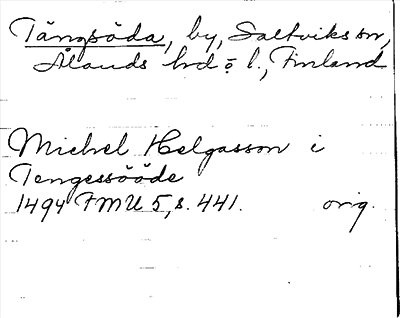 Tängsöda, by, Saltviks sn,
Ålands hd o. l., Finland
Michel Helgasson i
Tengessööde
1494 FMU 5, s. 441. orig.